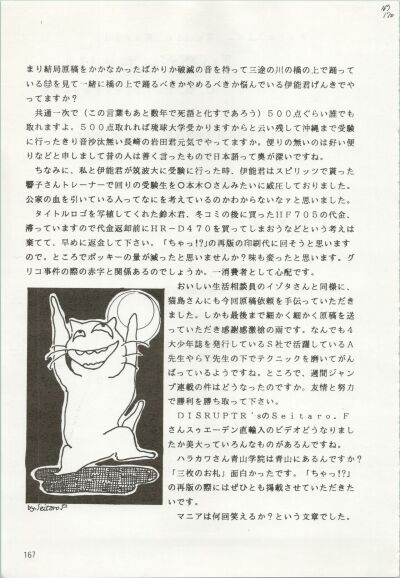 まり結局原稿をかかなかったばかりか破滅の音を持って三途の川の橋の上で踊って
いる図を見て一緒に橋の上で踊るべきかやめるべきか悩んでいる伊能君げんきでや
ってますか？
共通一次で（この言葉もあと数年で死語と化すであろう）５００点ぐらい誰でも
取れますよ。５００点取れれば琉球大学受かりますからと云い残して沖縄まで受験
に行ったきり音沙汰無い長崎の岩田君元気でやってますか。便りの無いのは好い便
りなどと申しまして昔の人は善く言ったもので日本語って奥が深いですね。
ちなみに、私と伊能君が筑波大に受験に行った時、伊能君はスピリッツで貰った
響子さんトレーナーで回りの受験生を〇本木〇さんみたいに威圧しておりました。
公家の血を引いている人ってなにを考えているのかわからないなァと思いました。
タイトルロゴを写植してくれた鈴木君、冬コミの後に買ったＨＦ７０５の代金、
滞っていますので代金返却前にＨＲ－Ｄ４７０を買ってしまおうなどという考えは
棄てて、早めに返金して下さい。「ちゃっ!?」の再版の印刷代に回そうと思います
ので。ところでポッキーの量が減ったと思いませんか？味も変ったと思います。グ
リコ事件の際の赤字と関係あるのでしょうか。一消費者として心配です。
おいしい生活相談員のイゾタさんと同様に、
猫島さんにも今回原稿依頼を手伝っていただき
ました。しかも最後まで細かく細かく原稿を送
っていただき感謝感激槍の雨です。なんでも４
大少年誌を発行しているＳ社で活躍しているＡ
先生やらＹ先生の下でテクニックを磨いてがん
ばっているようですね。ところで、週間ジャン
プ連載の件はどうなったのですか。友情と努力
で勝利を勝ち取って下さい。
ＤＩＳＲＵＰＴＲ'ｓのＳｅｉｔａｒｏ．Ｆ
さんスウエーデン直輸入のビデオどうなりまし
たか美大っていろんなものがあるんですね。
ハラカワさん青山学院は青山にあるんですか？
「三枚のお札」面白かったです。「ちゃっ!?」
の再版の際にはぜひとも掲載させていただきた
いです。
マニアは何回笑えるか？という文章でした。
by Seitaro.F
167